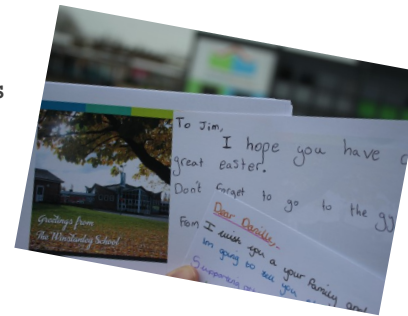 s
Greetings from
The Winstanley School
To Jim,
I hope you have a
great easter.
Don't forget to go to the gy
From
Dear Danielle,
I wish you a your family and
im going to tell you
Supporting